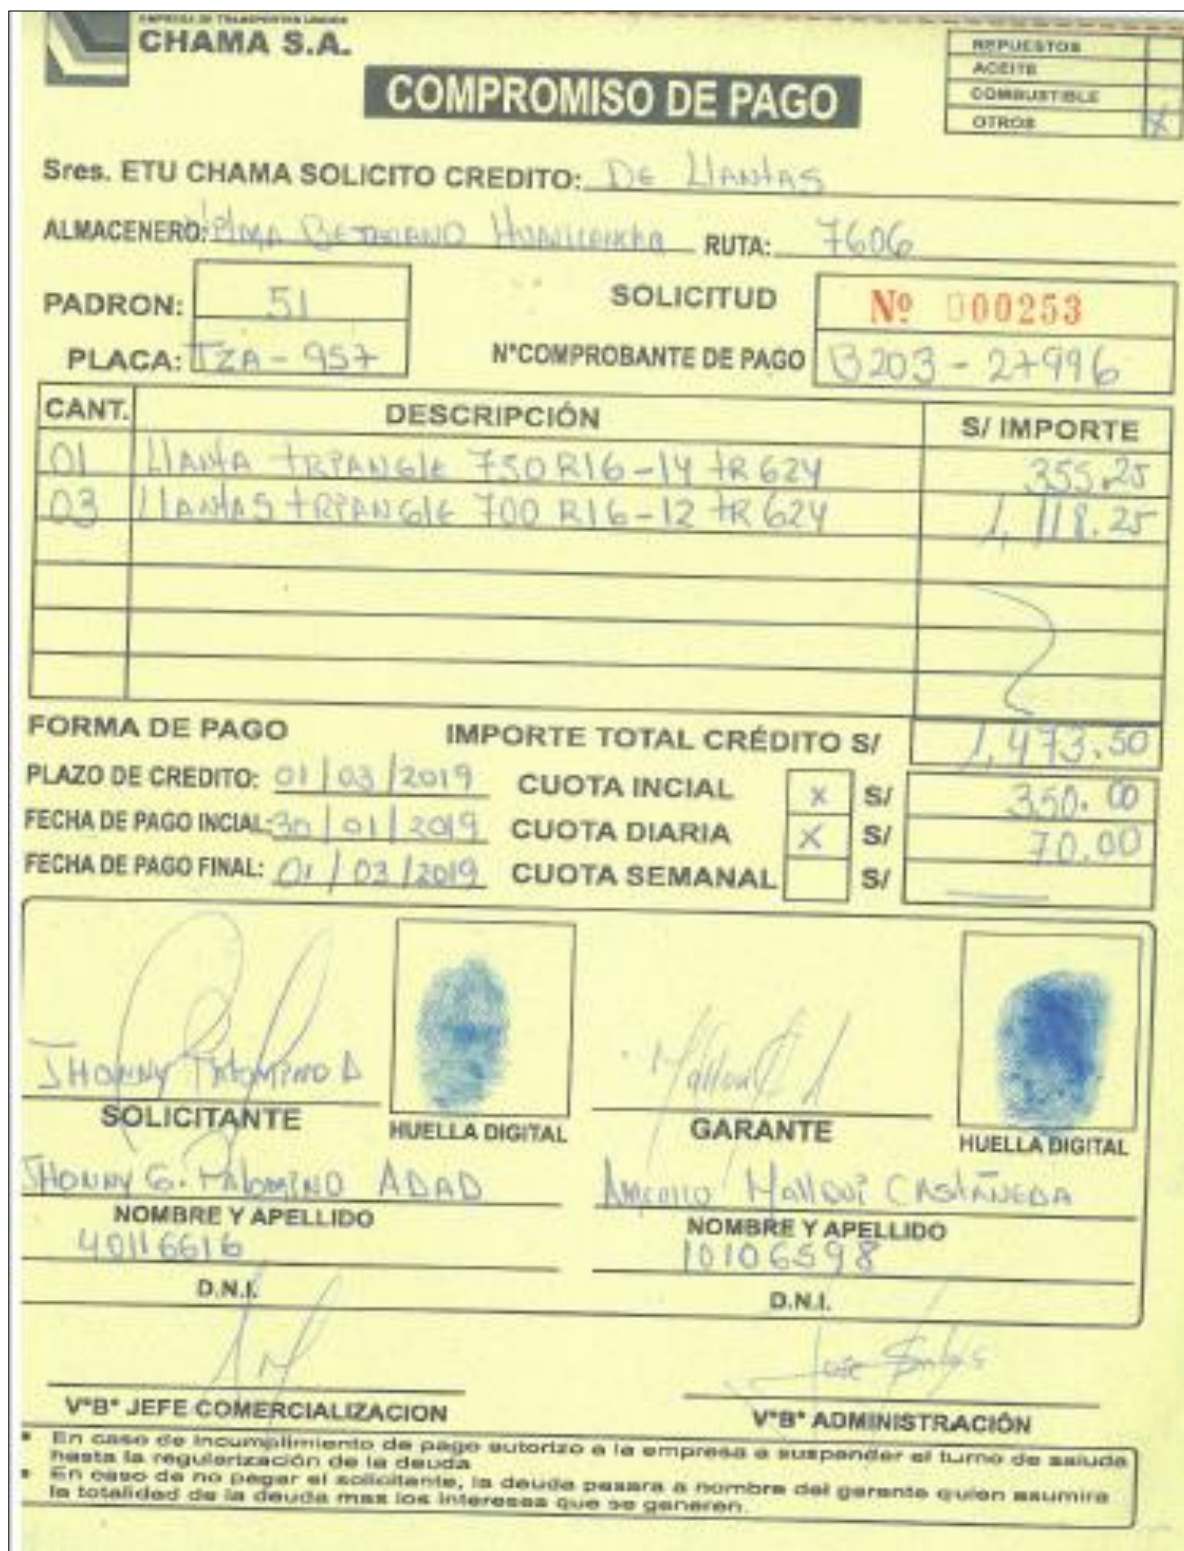 EMPRESA DE TRANSPORTES UNIDOS
CHAMA S.A.
REPUESTOS
ACEITE
COMBUSTIBLE
OTROS X
COMPROMISO DE PAGO
Sres. ETU CHAMA SOLICITO CREDITO: DE LlANtAS
ALMACENERO: RUTA: 7606
PADRON: 51
SOLICITUD Nº 000253
PLACA: TZA - 957
N°COMPROBANTE DE PAGO B203 - 27996
CANT. DESCRIPCIÓN S/ IMPORTE
01 LlANtA tRIANGlE 750 R16-14 tR 624 355.25
03 LlANtAS tRIANGlE 700 R16-12 tR 624 1,118.25
FORMA DE PAGO IMPORTE TOTAL CRÉDITO S/ 1,473.50
PLAZO DE CREDITO: 01/03/2019 CUOTA INCIAL X S/ 350.00
FECHA DE PAGO INCIAL: 30/01/2019 CUOTA DIARIA X S/ 70.00
FECHA DE PAGO FINAL: 01/03/2019 CUOTA SEMANAL S/
JHONNY PALOMINO A
SOLICITANTE HUELLA DIGITAL GARANTE HUELLA DIGITAL
JHONNY G. PALOMINO ADAD MAllQUI CASTAÑEDA
NOMBRE Y APELLIDO NOMBRE Y APELLIDO
40116616 10106598
D.N.I. D.N.I.
V°B° JEFE COMERCIALIZACION V°B° ADMINISTRACIÓN
En caso de incumplimiento de pago autorizo a la empresa a suspender el turno de saluda
hasta la regularización de la deuda
En caso de no pagar el solicitante, la deuda pasara a nombre del garante quien asumira
la totalidad de la deuda mas los intereses que se generen.